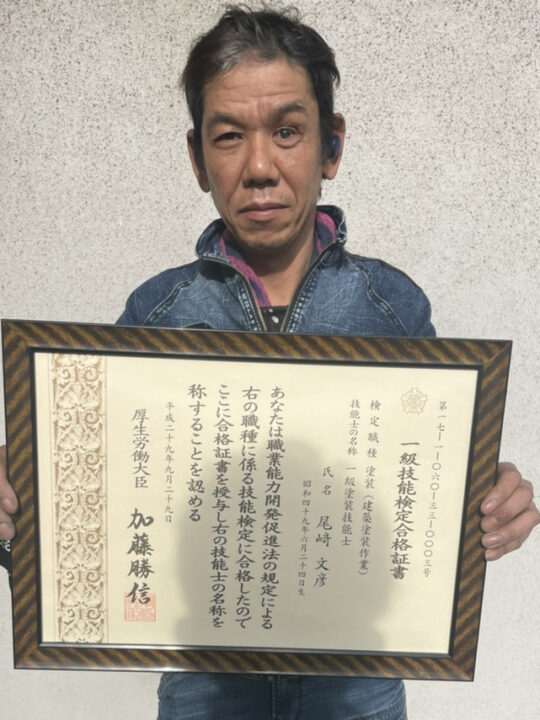 第一七ー一ー〇六〇ー三三ー〇〇〇三号
一級技能検定合格証書
検定職種 塗装(建築塗装作業)
技能士の名称 一級塗装技能士
氏名 尾﨑 文彦
昭和四十九年六月二十四日生
あなたは職業能力開発促進法の規定による
右の職種に係る技能検定に合格したので
ここに合格証書を授与し右の技能士の名称を
称することを認める
平成二十九年九月二十九日
厚生労働大臣 加藤勝信